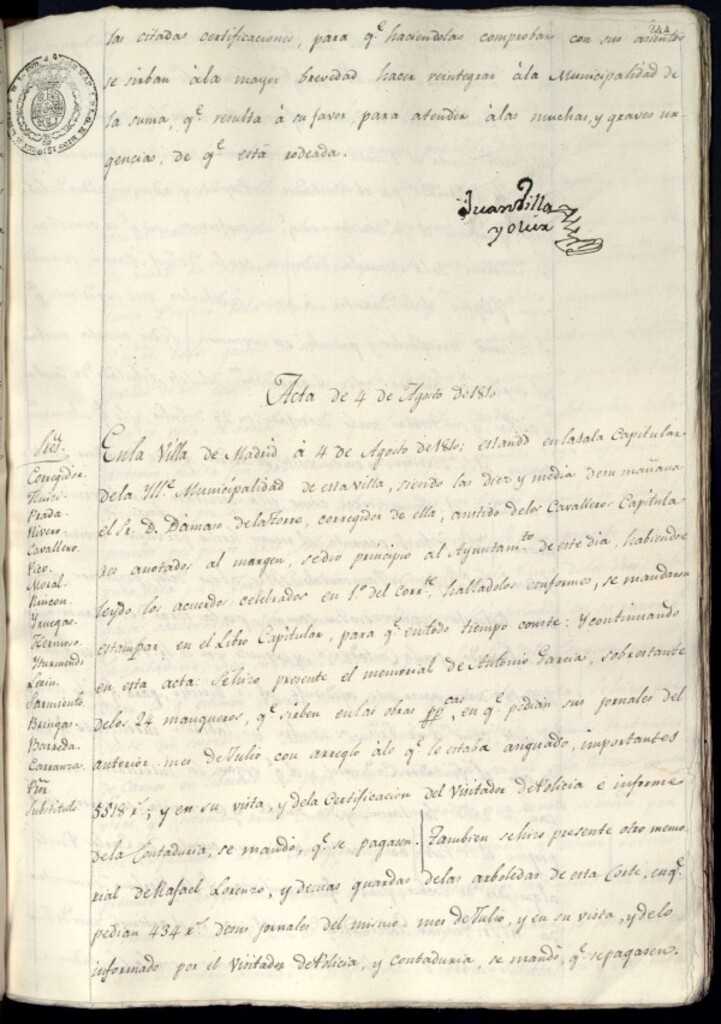 las citadas certificaciones, para q.e haciendolas comprobar con sus asientos
se sirban àla mayor brevedad hacer reintegrar àla Municipalidad de
la suma, q.e resulta à su favor para atender àlas muchas, y graves ur-
gencias, de q.e está rodeada.
Juan Villa
y Olier
Acta de 4 de Agosto de 1810
Sres.
Corregidor
Prada
Rivero
Cavallero
Vico
Moral
Rincon
Yruegas
Hermoso
Yturmendi
Leon
Sarmiento
Bringas
Barreda
Carranza
Substituto
Enla Villa de Madrid à 4 de Agosto de 1810; estando enlasala Capitular
dela Yll.e Municipalidad de esta villa, siendo las diez y media desu mañana
el Sr. D. Damaso dela Torre, corregidor de ella, asistido delos Cavalleros Capitula
res anotados al margen, sedio principio al Ayuntam.to de este dia, habiendose
leydo los acuerdos celebrados en 1.o del Corr.te, halladolos conformes, se mandaron
estampar en el Libro Capitular, para q.e entodo tiempo conste: Y continuando
en esta acta: Sehizo presente el memorial de Antonio Garcia, sobrestante
delos 24 mangueros, q.e sirben enlas obras pp.cas, en q.e pedian sus jornales del
anterior mes de Julio con arreglo alo q.e le estaba asignado, importantes
5518 r.s; y en su vista, y dela Certificacion del Visitador de Policia e informe
dela Contaduria, se mandó, q.e se pagasen. Tambien sehizo presente otro memo
rial de Rafael Lorenzo, y demas guardas delas arboledas de esta Corte, enq.e
pedian 434 r.s desus jornales del mismo mes de Julio, y en su vista, y delo
informado por el Visitador de Policia, y contaduria, se mandó, q.e sepagasen.